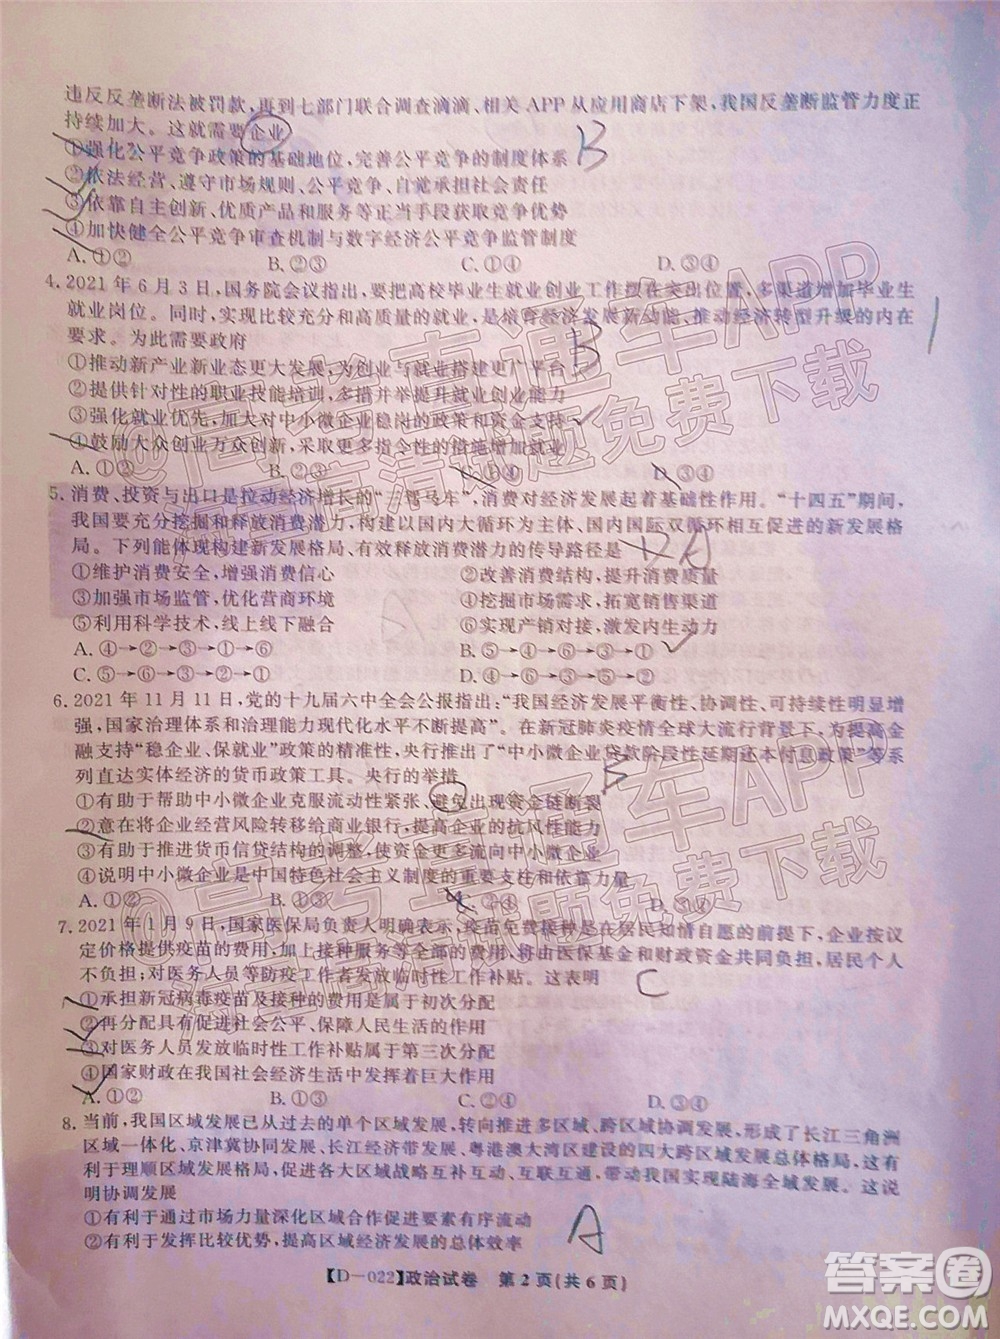 违反反垄断法被罚款，再到七部门联合调查滴滴、相关 APP 从应用商店下架，我国反垄断监管力度正
持续加大。这就需要企业
①强化公平竞争政策的基础地位，完善公平竞争的制度体系
②依法经营、遵守市场规则、公平竞争、自觉承担社会责任
③依靠自主创新、优质产品和服务等正当手段获取竞争优势
④加快健全公平竞争审查机制与数字经济公平竞争监管制度
A. ①② B. ②③ C. ①④ D. ③④
B
4. 2021 年 6 月 3 日，国务院会议指出，要把高校毕业生就业创业工作摆在突出位置，多渠道增加毕业生
就业岗位。同时，实现比较充分和高质量的就业，是培育经济发展新动能、推动经济转型升级的内在
要求。为此需要政府
①推动新产业新业态更大发展，为创业与就业搭建更广平台
②提供针对性的职业技能培训，多举并举提升就业能力
③强化就业优先，加大对中小微企业稳岗的政策和资金支持
④鼓励大众创业万众创新，采取更多指令性的措施增加就业
A. ①② B. ①③ C. ②④ D. ③④
B
5. 消费、投资与出口是拉动经济增长的“三驾马车”，消费对经济发展起着基础性作用。“十四五”期间，
我国要充分挖掘和释放消费潜力，构建以国内大循环为主体、国内国际双循环相互促进的新发展格
局。下列能体现构建新发展格局、有效释放消费潜力的传导路径是
①维护消费安全，增强消费信心 ②改善消费结构，提升消费质量
③加强市场监管，优化营商环境 ④挖掘市场需求，拓宽销售渠道
⑤利用科学技术，线上线下融合 ⑥实现产销对接，激发内生动力
A. ④→②→③→①→⑥
C. ⑤→⑥→③→①→②
6. 2021 年 11 月 11 日，党的十九届六中全会公报指出：“我国经济发展平衡性、协调性、可持续性明显增
强，国家治理体系和治理能力现代化水平不断提高”。在新冠肺炎疫情全球大流行背景下，为提高金
融支持“稳企业、保就业”政策的精准性，央行推出了“中小微企业贷款阶段性延期还本付息政策”等系
列直达实体经济的货币政策工具。央行的举措
①有助于帮助中小微企业克服流动性紧张、避免出现资金链断裂
②意在将企业经营风险转移给商业银行，提高企业的抗风险能力
③有助于推进货币信贷结构的调整，使资金更多流向中小微企业
④说明中小微企业是中国特色社会主义制度的重要支柱和依靠
A. ①② B. ①③ C. ②④ D. ③④
B
7. 2021 年 1 月 9 日，国家医保局负责人明确表示，疫苗免费接种是在居民知情自愿的前提下，企业按议
定价格提供疫苗的费用，加上接种服务等全部的费用，将由医保基金和财政资金共同负担，居民个人
不负担；对医务人员等防疫工作者发放临时性工作补贴。这表明
①承担新冠病毒疫苗及接种的费用是属于初次分配
②再分配具有促进社会公平、保障人民生活的作用
③对医务人员发放临时性工作补贴属于第三次分配
④国家财政在我国社会经济生活中发挥着巨大作用
A. ①② B. ①③ C. ②④ D. ③④
C
8. 当前，我国区域发展已从过去的单个区域发展，转向推进多区域、跨区域协调发展，形成了长江三角洲
区域一体化，京津冀协同发展、长江经济带发展、粤港澳大湾区建设的四大跨区域发展总体格局。这
有利于理顺区域发展格局，促进各大区域战略互补互动、互联互通，带动我国实现陆海全域发展。这说
明协调发展
①有利于通过市场力量深化区域合作促进要素有序流动
②有利于发挥比较优势，提高区域经济发展的总体效率
A
【D－022】政治试卷 第 2 页（共 6 页）
@高考直通车APP
海量高清试题免费下载
@高考直通车APP
海量高清试题免费下载
答案卷
MXQE.COM